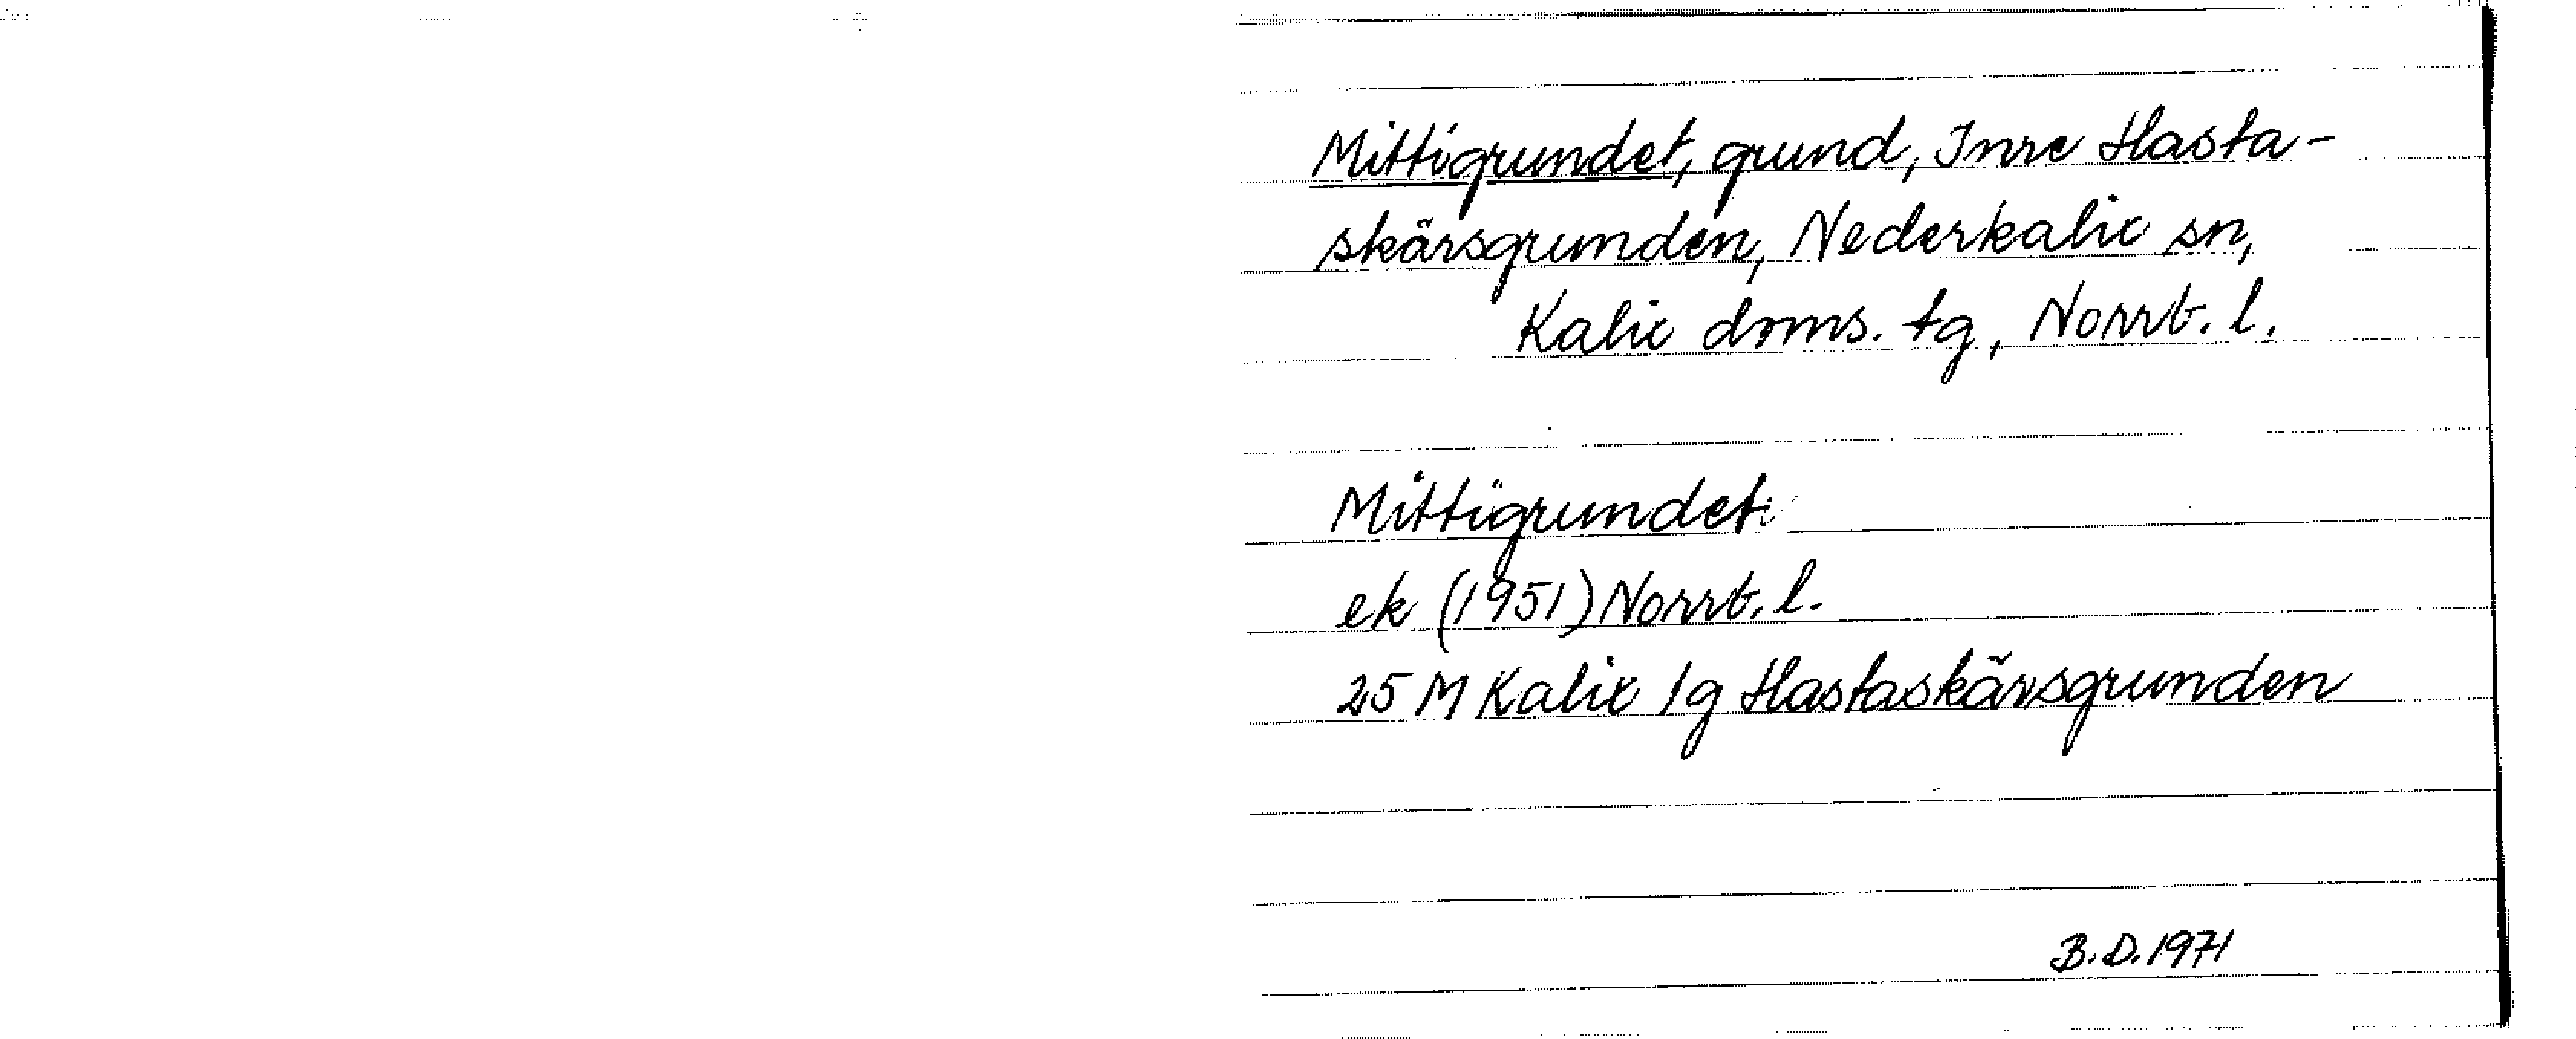 Mittigrundet, grund, Inre Hasta-
skärsgrunden, Nederkalix sn,
Kalix doms. tg, Norrb. l.
Mittigrundet
ek (1951) Norrb. l.
25 M Kalix lg Hastaskärsgrunden
B.D. 1971